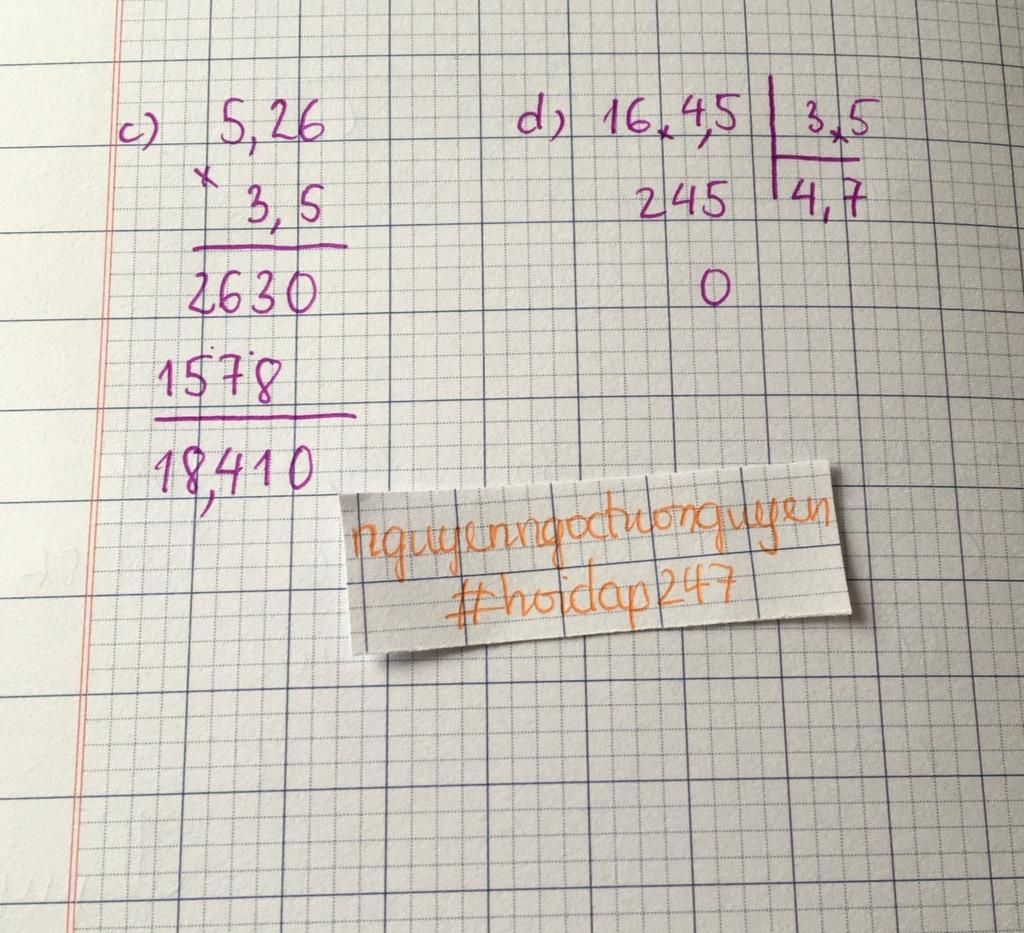 c) 5,26
× 3,5
2630
1578
18,410
d) 16,4,5 3,5
245 4,7
0
nguyenngoctuonguyen
#hoidap247